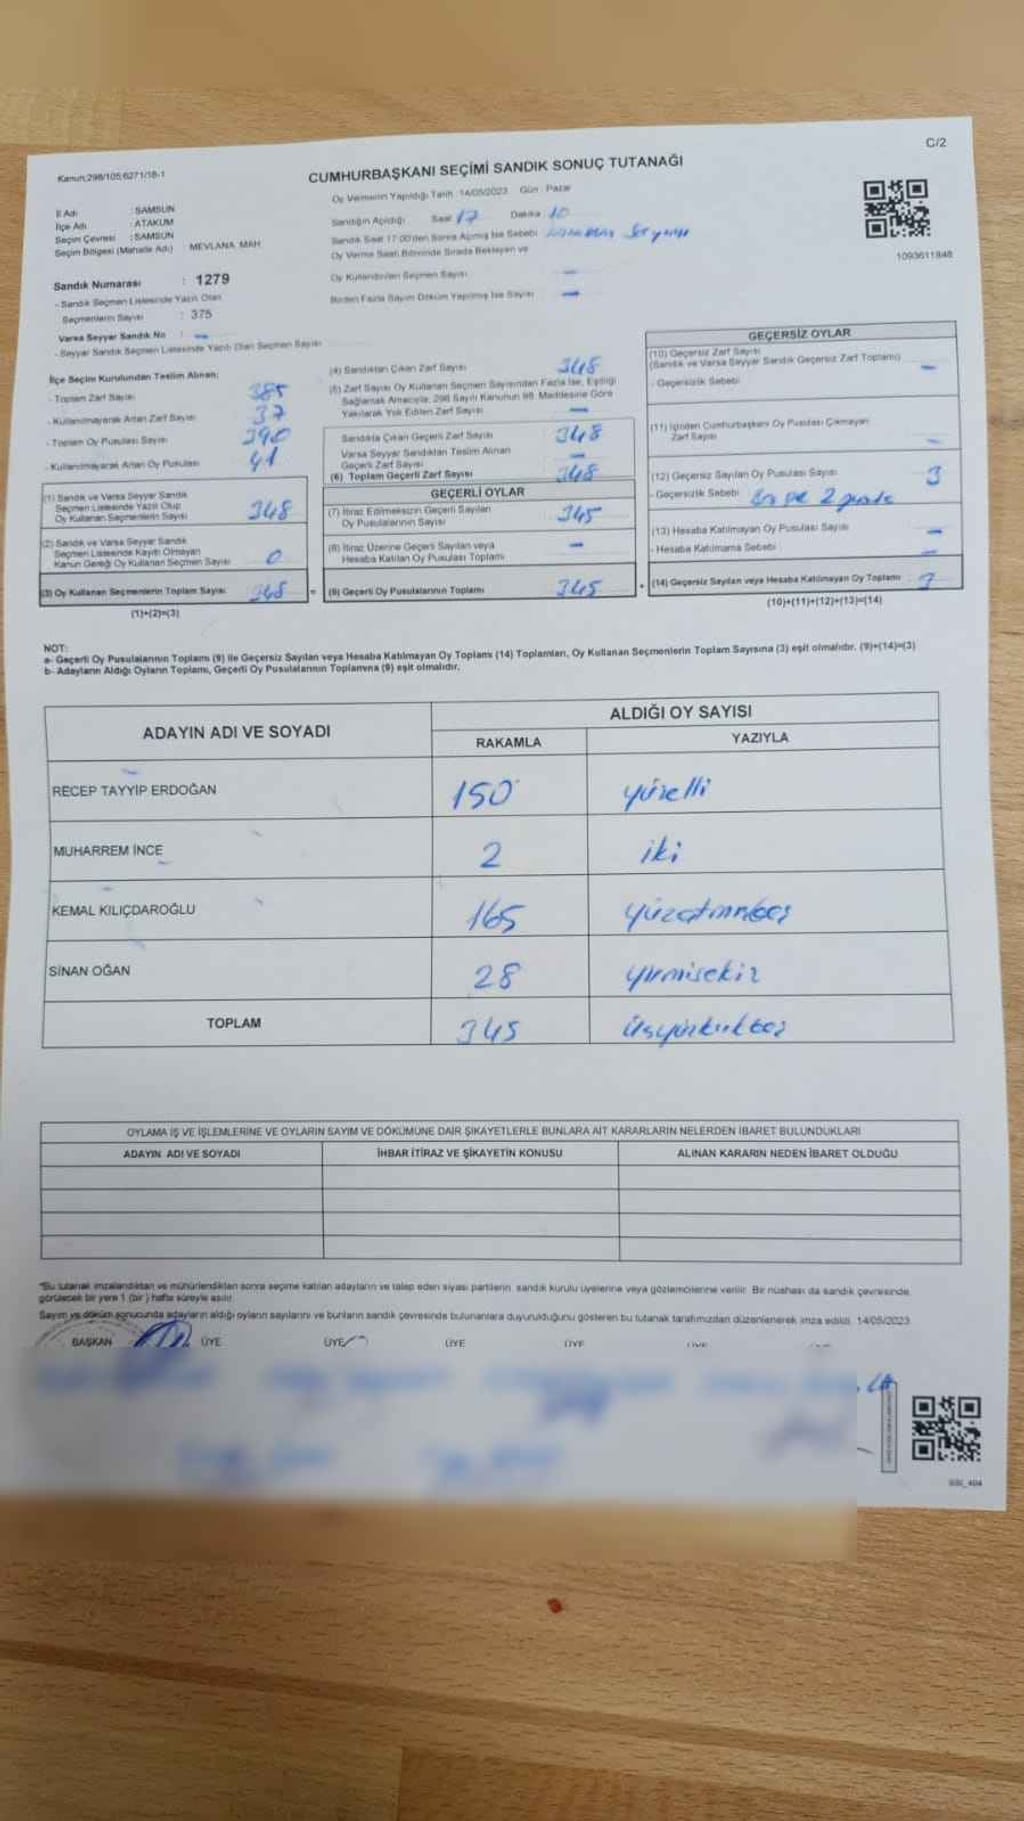 C/2
Kanun;298/105;6271/18-1
CUMHURBAŞKANI SEÇİMİ SANDIK SONUÇ TUTANAĞI
Oy Vermenin Yapıldığı Tarih : 14/05/2023 Gün : Pazar
İl Adı : SAMSUN
İlçe Adı : ATAKUM
Seçim Çevresi : SAMSUN
Seçim Bölgesi (Mahalle Adı) : MEVLANA MAH.
Sandığın Açıldığı Saat 17 Dakika 10
Sandık Saat 17:00'den Sonra Açılmış İse Sebebi
Oy Verme Saati Bitiminde Sırada Bekleyen ve
Oy Kullandırılan Seçmen Sayısı —
Birden Fazla Sayım Döküm Yapılmış İse Sayısı —
1093611848
Sandık Numarası : 1279
- Sandık Seçmen Listesinde Yazılı Olan
Seçmenlerin Sayısı : 375
Varsa Seyyar Sandık No : —
- Seyyar Sandık Seçmen Listesinde Yazılı Olan Seçmen Sayısı
İlçe Seçim Kurulundan Teslim Alınan:
- Toplam Zarf Sayısı 385
- Kullanılmayarak Artan Zarf Sayısı 37
- Toplam Oy Pusulası Sayısı 390
- Kullanılmayarak Artan Oy Pusulası 41
(1) Sandık ve Varsa Seyyar Sandık
Seçmen Listesinde Yazılı Olup
Oy Kullanan Seçmenlerin Sayısı 348
(2) Sandık ve Varsa Seyyar Sandık
Seçmen Listesinde Kayıtlı Olmayan
Kanun Gereği Oy Kullanan Seçmen Sayısı 0
(3) Oy Kullanan Seçmenlerin Toplam Sayısı 348
(1)+(2)=(3)
(4) Sandıktan Çıkan Zarf Sayısı 348
(5) Zarf Sayısı Oy Kullanan Seçmen Sayısından Fazla İse, Eşitliği
Sağlamak Amacıyla, 298 Sayılı Kanunun 98. Maddesine Göre
Yakılarak Yok Edilen Zarf Sayısı —
Sandıkta Çıkan Geçerli Zarf Sayısı 348
Varsa Seyyar Sandıktan Teslim Alınan
Geçerli Zarf Sayısı —
(6) Toplam Geçerli Zarf Sayısı 348
GEÇERLİ OYLAR
(7) İtiraz Edilmeksizin Geçerli Sayılan
Oy Pusulalarının Sayısı 345
(8) İtiraz Üzerine Geçerli Sayılan veya
Hesaba Katılan Oy Pusulası Toplamı —
= (9) Geçerli Oy Pusulalarının Toplamı 345 +
GEÇERSİZ OYLAR
(10) Geçersiz Zarf Sayısı
(Sandık ve Varsa Seyyar Sandık Geçersiz Zarf Toplamı) —
- Geçersizlik Sebebi
(11) İçinden Cumhurbaşkanı Oy Pusulası Çıkmayan
Zarf Sayısı —
(12) Geçersiz Sayılan Oy Pusulası Sayısı 3
- Geçersizlik Sebebi
(13) Hesaba Katılmayan Oy Pusulası Sayısı —
- Hesaba Katılmama Sebebi —
(14) Geçersiz Sayılan veya Hesaba Katılmayan Oy Toplamı 3
(10)+(11)+(12)+(13)=(14)
NOT:
a- Geçerli Oy Pusulalarının Toplamı (9) ile Geçersiz Sayılan veya Hesaba Katılmayan Oy Toplamı (14) Toplamları, Oy Kullanan Seçmenlerin Toplam Sayısına (3) eşit olmalıdır. (9)+(14)=(3)
b- Adayların Aldığı Oyların Toplamı, Geçerli Oy Pusulalarının Toplamına (9) eşit olmalıdır.
ADAYIN ADI VE SOYADI ALDIĞI OY SAYISI
RAKAMLA YAZIYLA
RECEP TAYYİP ERDOĞAN 150 yüzelli
MUHARREM İNCE 2 iki
KEMAL KILIÇDAROĞLU 165 yüzatmışbeş
SİNAN OĞAN 28 yirmisekiz
TOPLAM 345 üçyüzkırkbeş
OYLAMA İŞ VE İŞLEMLERİNE VE OYLARIN SAYIM VE DÖKÜMÜNE DAİR ŞİKAYETLERLE BUNLARA AİT KARARLARIN NELERDEN İBARET BULUNDUKLARI
ADAYIN ADI VE SOYADI İHBAR İTİRAZ VE ŞİKAYETİN KONUSU ALINAN KARARIN NEDEN İBARET OLDUĞU
*Bu tutanak imzalandıktan ve mühürlendikten sonra seçime katılan adayların ve talep eden siyasi partilerin sandık kurulu üyelerine veya gözlemcilerine verilir. Bir nüshası da sandık çevresinde,
görülecek bir yere 1 (bir) hafta süreyle asılır.
Sayım ve döküm sonucunda adayların aldığı oyların sayılarını ve bunların sandık çevresinde bulunanlara duyurulduğunu gösteren bu tutanak tarafımızdan düzenlenerek imza edildi. 14/05/2023
BAŞKAN ÜYE ÜYE ÜYE ÜYE